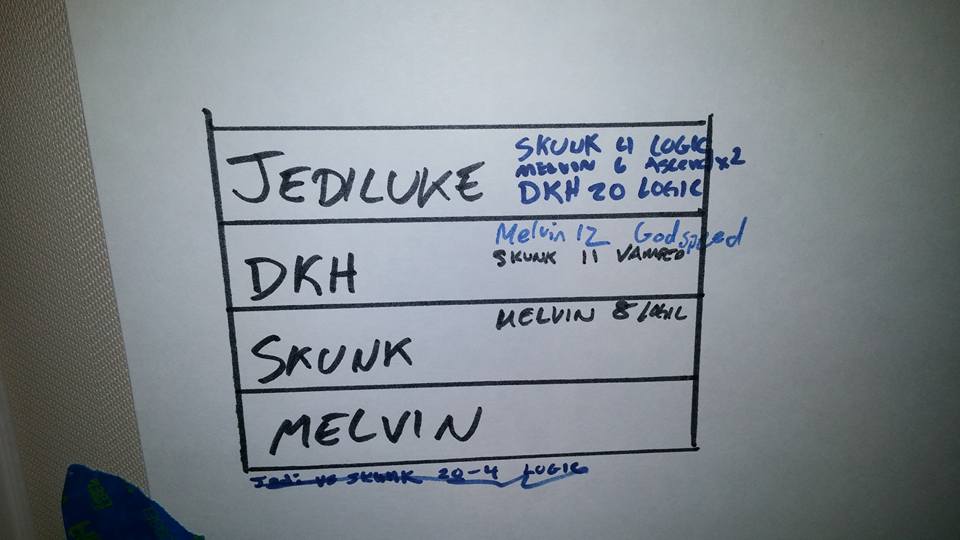 JEDILUKE
SKUNK 4 LOGIC
MELVIN 6 ASCEND x2
DKH 20 LOGIC
DKH
Melvin 12 Godspeed
SKUNK 11 VAMPED
SKUNK
MELVIN 8 LOGIC
MELVIN
Jedi vs SKUNK 20-4 LOGIC